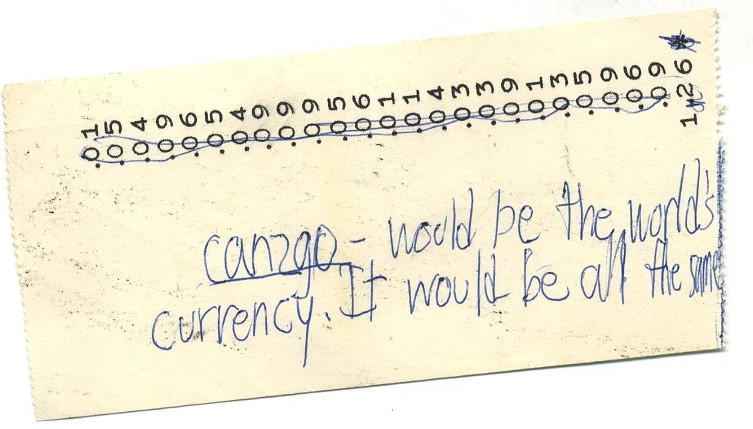 .01
.05
.04
.09
.06
.05
.04
.09
.09
.09
.05
.06
.01
.01
.04
.03
.03
.09
.01
.03
.05
.09
.06
.09
1.26 *
canzgo - would be the world's
currency. It would be all the same